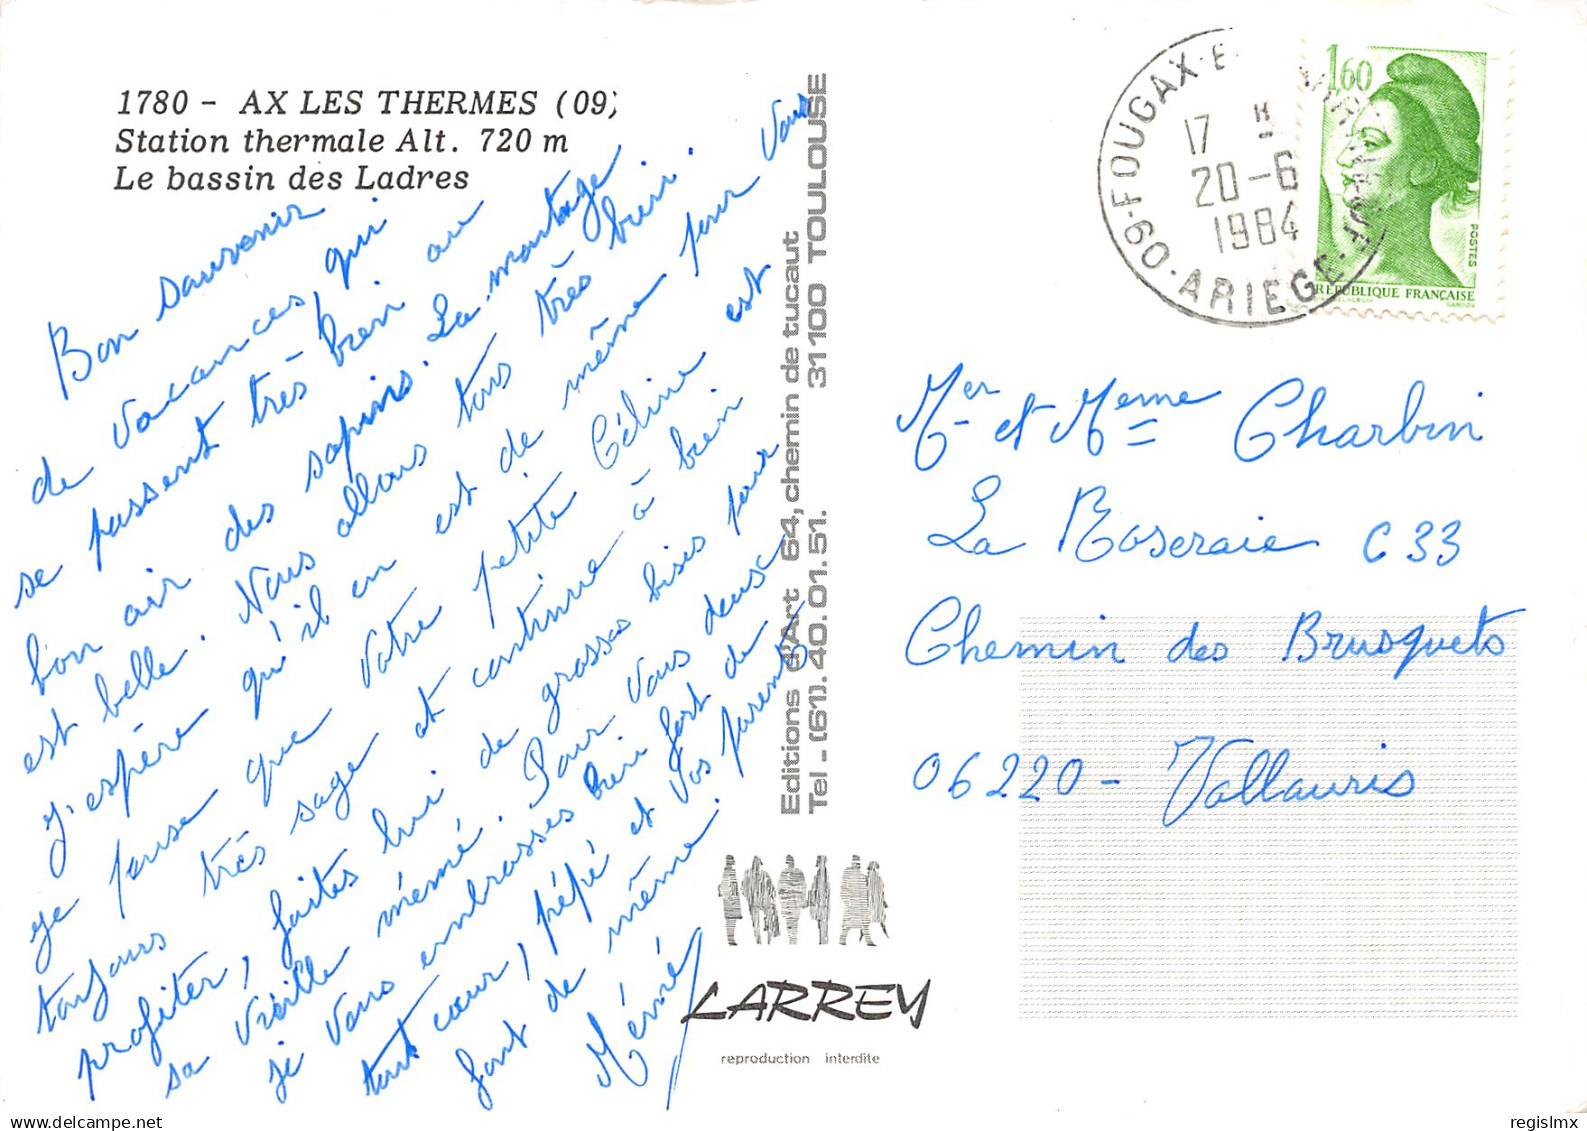 1780 - AX LES THERMES (09)
Station thermale Alt. 720 m
Le bassin des Ladres
Bon souvenir
de vacances, qui
se passent très bien au
bon air des sapins. La montage
est belle. Nous allons tous très bien.
J'espère qu'il en est de même pour vous
je pense que votre petite Céline est
toujours très sage et continue à bien
profiter, faites lui de grosses bises pour
sa vieille mémé. Pour vous deux
je vous embrasses bien fort de
tout cœur, pépé et vos parents
font de même.
Mémé
Editions d'Art 64, chemin de tucaut
Tel - (61). 40.01.51. 31100 TOULOUSE
LARREY
reproduction interdite
FOUGAX-E
09-ARIEGE
17 H
20-6
1984
1,60
POSTES
RÉPUBLIQUE FRANÇAISE
Mer et Meme Charbin
La Roseraie C 33
Chemin des Brusquets
06220 - Vallauris
regislmx